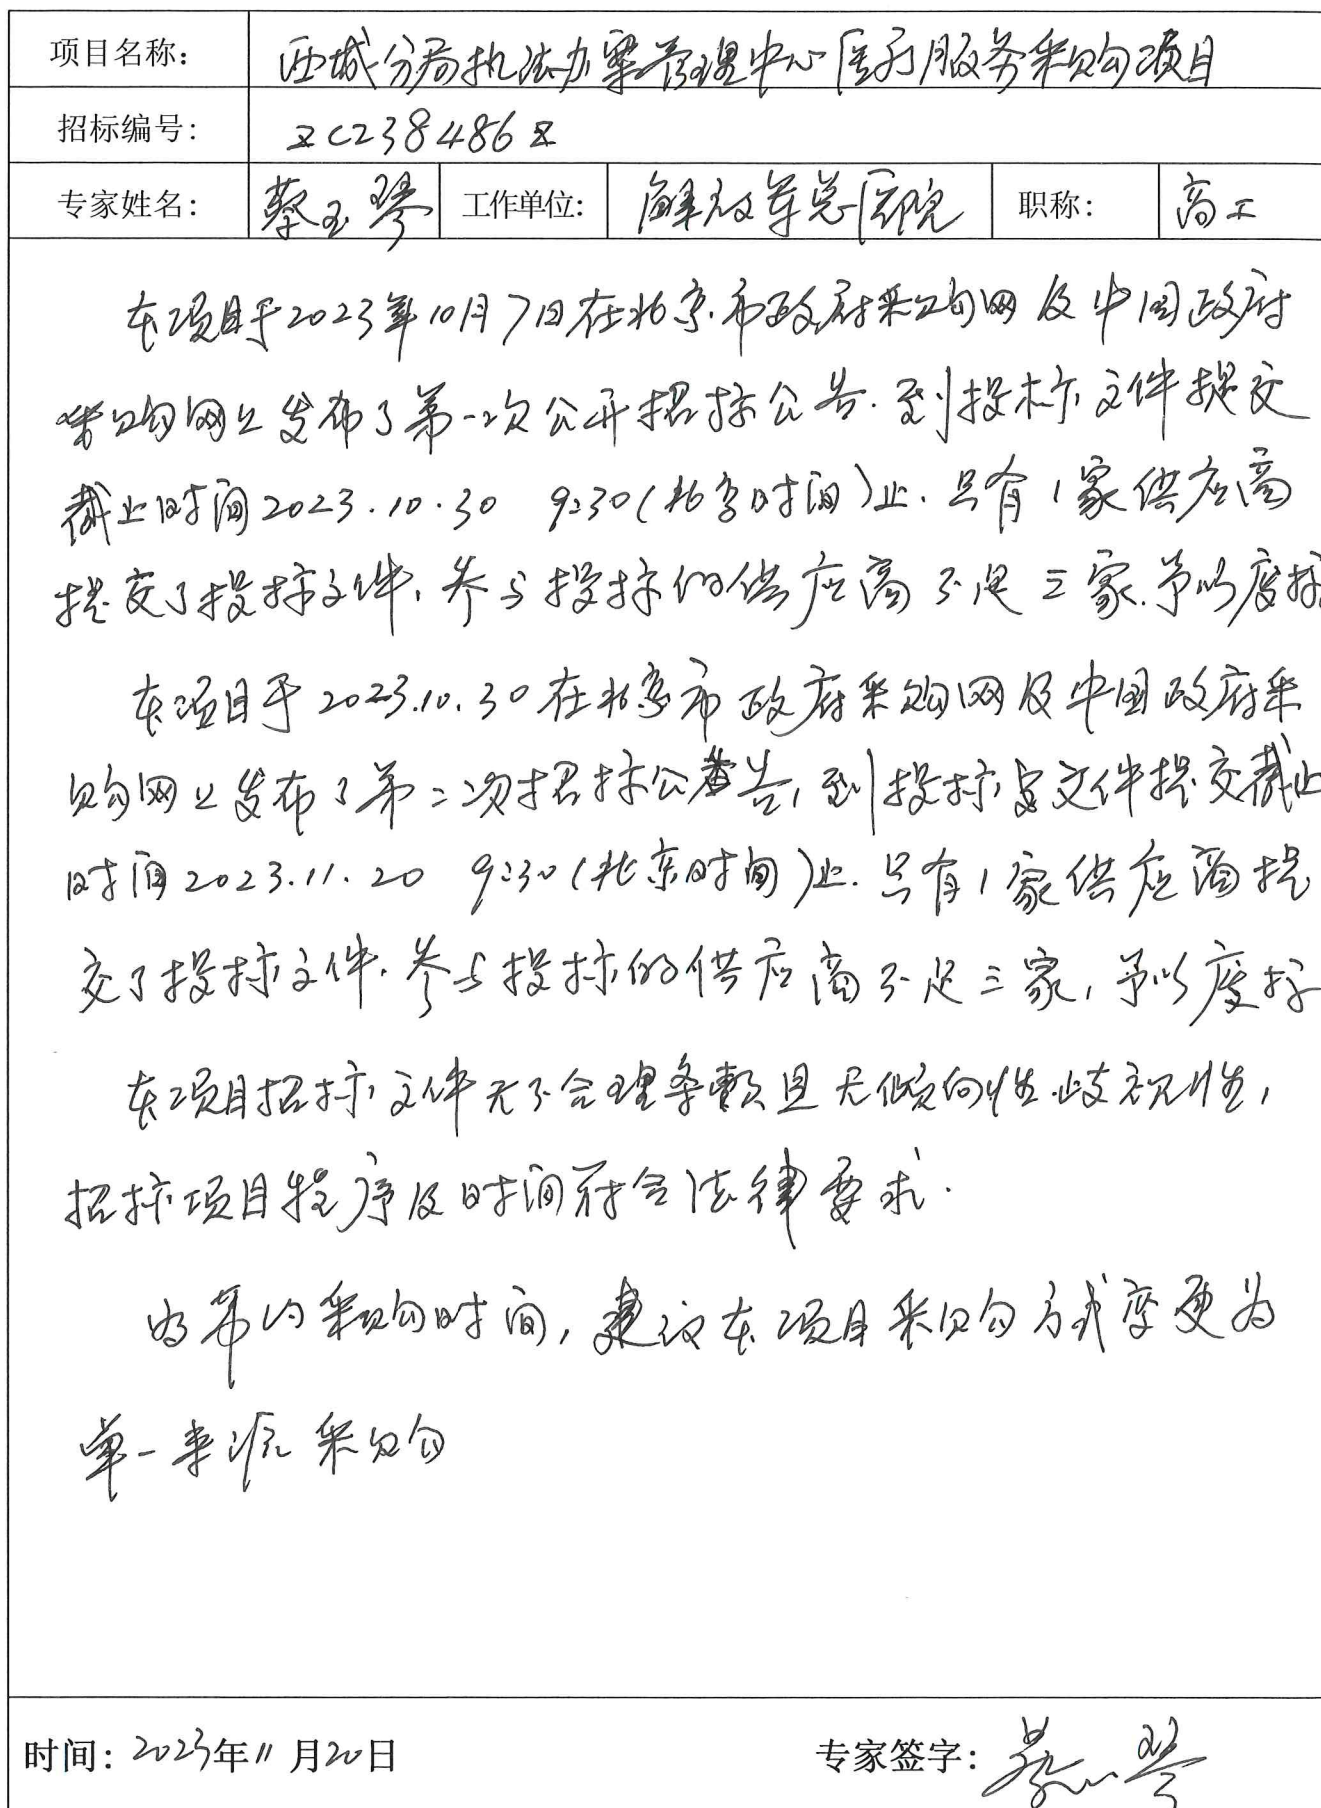 项目名称： 西城分局执法办案管理中心医疗服务采购项目
招标编号： ZC238486Z
专家姓名： 蔡玉琴 工作单位： 解放军总医院 职称： 高工
本项目于2023年10月7日在北京市政府采购网及中国政府
采购网上发布了第一次公开招标公告.到投标文件提交
截止时间2023.10.30 9:30(北京时间)止.只有1家供应商
提交了投标文件,参与投标的供应商不足三家.予以废标
本项目于2023.10.30在北京市政府采购网及中国政府采
购网上发布了第二次招标公告,到投标文件提交截止
时间2023.11.20 9:30(北京时间)止.只有1家供应商提
交了投标文件.参与投标的供应商不足三家,予以废标
本项目招标文件无不合理条款且无倾向性.歧视性,
招标项目程序及时间符合法律要求.
为节约采购时间,建议本项目采购方式变更为
单一来源采购
时间：2023年11月20日 专家签字：蔡玉琴